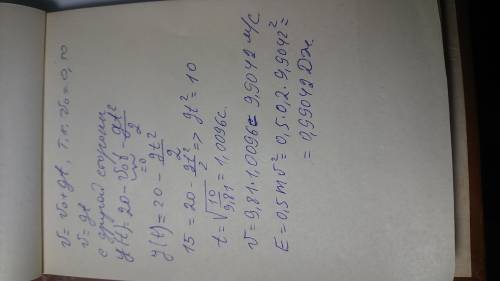 v = v₀ + gt, т.к. v₀ = 0, то
v = gt
с другой стороны
y(t) = 20 - v₀t - gt²/2
=0
y(t) = 20 - gt²/2
15 = 20 - gt²/2 => gt² = 10
t = √(10/9,81) = 1,0096 c.
v = 9,81·1,0096 = 9,9042 м/с.
E = 0,5mv² = 0,5·0,2·9,9042² =
= 0,99042 Дж